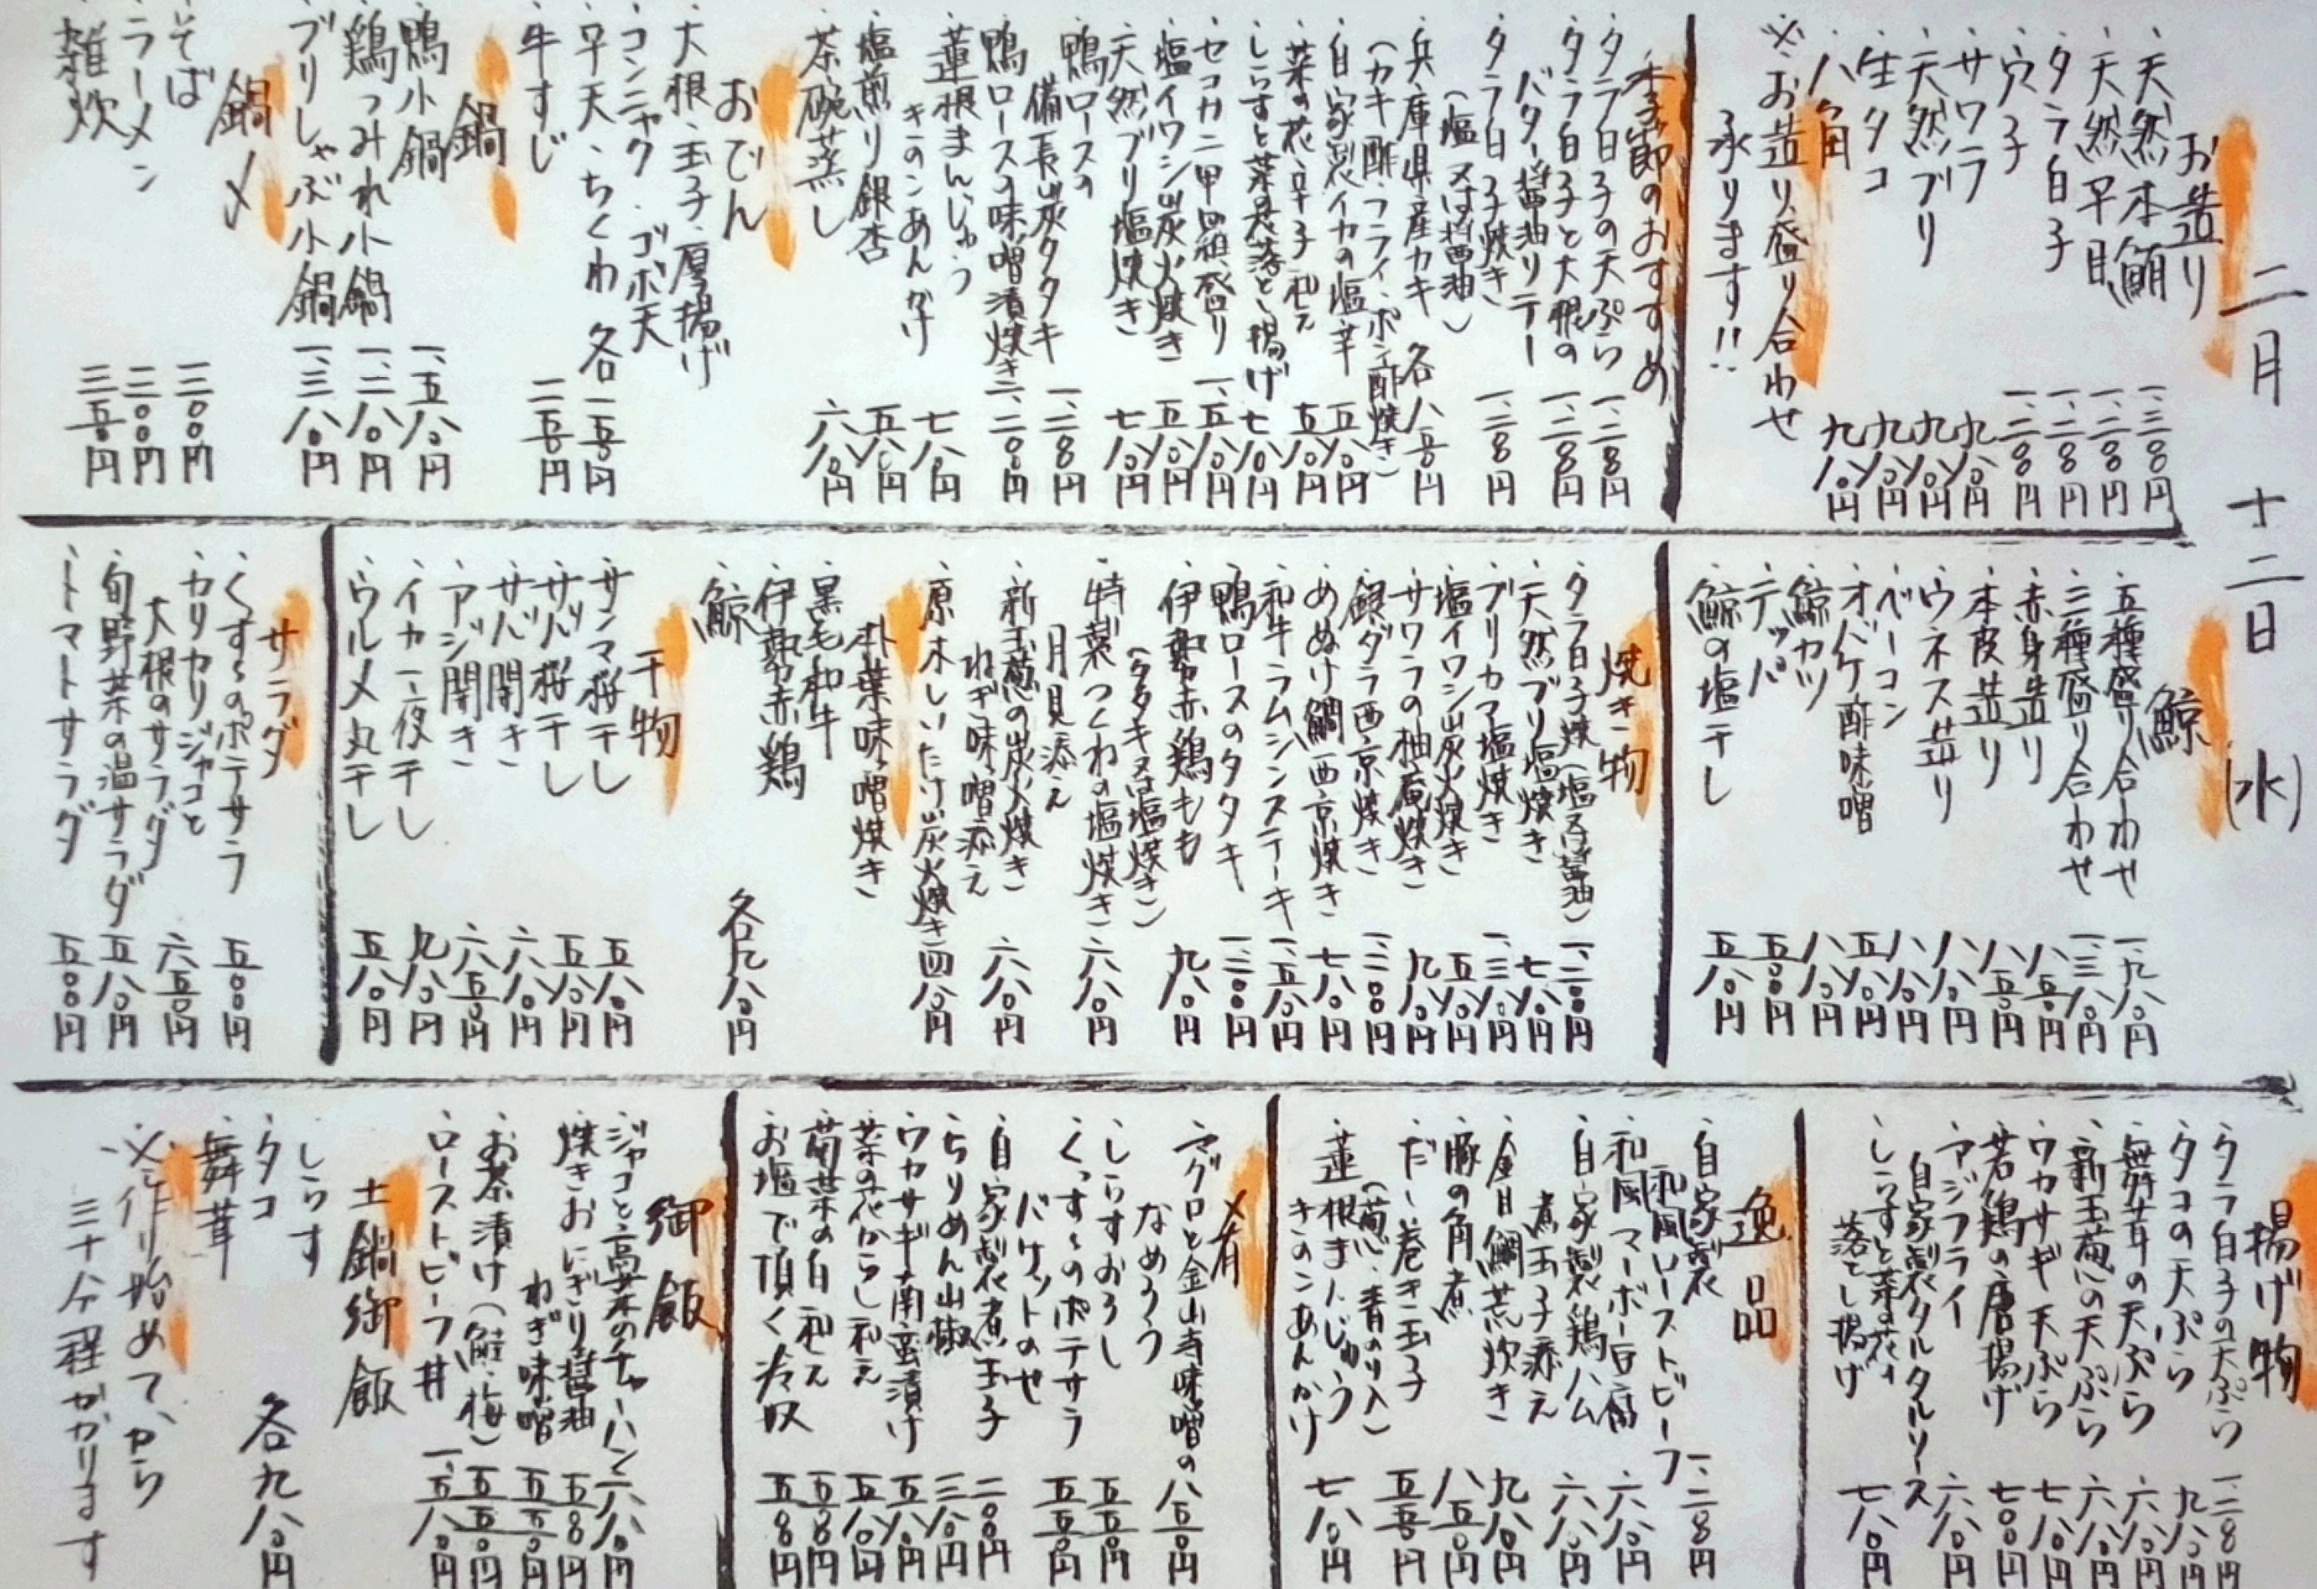 二月 十二日 (水)
お造り
・天然本鮪 一、二八〇円
・天然平目 一、二八〇円
・タラ白子 一、二八〇円
・穴子 一、二八〇円
・サワラ 九八〇円
・天然ブリ 九八〇円
・生タコ 九八〇円
・八角 九八〇円
※お造り盛り合わせ
承ります!!
季節のおすすめ
・タラ白子の天ぷら 一、二八〇円
・タラ白子と大根の
バター醤油ソテー 一、二八〇円
・タラ白子焼き
(塩又は醤油) 一、二八〇円
・兵庫県産カキ 各八五〇円
(カキ酢・フライ・ポン酢焼き)
・自家製イカの塩辛 五八〇円
・菜の花辛子和え 五八〇円
・しらすと菜の花落とし揚げ 七八〇円
・セコガニ甲羅盛り 一、五八〇円
・塩イワシ炭火焼き 五八〇円
・天然ブリ塩焼き 七八〇円
・鴨ロースの
備長炭タタキ 一、二八〇円
・鴨ロースの味噌漬焼き 一、二八〇円
・蓮根まんじゅう
きのこあんかけ 七八〇円
・塩煎り銀杏 五八〇円
・茶碗蒸し 六八〇円
おでん
・大根・玉子・厚揚げ
・コンニャク・ゴボ天
・平天・ちくわ 各二五〇円
・牛すじ 二五〇円
鍋
・鴨小鍋 一、五八〇円
・鶏つみれ小鍋 一、二八〇円
・ブリしゃぶ小鍋 一、三八〇円
鍋〆
・そば 三〇〇円
・ラーメン 三〇〇円
・雑炊 三五〇円
鯨
・五種盛り合わせ 一、九八〇円
・三種盛り合わせ 一、三八〇円
・赤身造り 八五〇円
・本皮造り 八五〇円
・ウネス造り 八八〇円
・ベーコン 八八〇円
・オバケ酢味噌 五八〇円
・鯨カツ 八八〇円
・テッパ 五〇〇円
・鯨の塩干し 五八〇円
焼き物
・タラ白子焼(塩又は醤油) 一、二八〇円
・天然ブリ塩焼き 七八〇円
・ブリカマ塩焼き 一、三八〇円
・塩イワシ炭火焼き 五八〇円
・サワラの柚庵焼き 九八〇円
・銀ダラ西京焼き 一、三〇〇円
・めぬけ鯛西京焼き 七八〇円
・和牛ラムシンステーキ 一、五八〇円
・鴨ロースのタタキ 一、二八〇円
・伊勢赤鶏もも
(タタキ又は塩焼き) 九八〇円
・特製つくねの塩焼き
月見添え 六八〇円
・新玉葱の炭火焼き
ねぎ味噌添え 六八〇円
・原木しいたけ炭火焼き 四八〇円
朴葉味噌焼き
・黒毛和牛
・伊勢赤鶏
・鯨 各九八〇円
干物
・サンマ桜干し 五八〇円
・サバ桜干し 五八〇円
・サバ開き 六八〇円
・アジ開き 六五〇円
・イカ一夜干し 九八〇円
・ウルメ丸干し 五八〇円
サラダ
・くすくのポテサラ 五〇〇円
・カリカリジャコと
大根のサラダ 六五〇円
・旬野菜の温サラダ 五八〇円
・トマトサラダ 五〇〇円
揚げ物
・タラ白子の天ぷら 一、二八〇円
・タコの天ぷら 九八〇円
・舞茸の天ぷら 六八〇円
・新玉葱の天ぷら 六八〇円
・ワカサギ天ぷら 七八〇円
・若鶏の唐揚げ 七〇〇円
・アジフライ
自家製タルタルソース 六八〇円
・しらすと菜の花の
落とし揚げ 七八〇円
逸品
・自家製
和風ローストビーフ 一、二八〇円
・和風マーボー豆腐 六八〇円
・自家製鶏ハム
煮玉子添え 六八〇円
・金目鯛荒炊き 九八〇円
・豚の角煮 八五〇円
・だし巻き玉子
(葱・青のり入) 五五〇円
・蓮根まんじゅう
きのこあんかけ 七八〇円
〆肴
・マグロと金山寺味噌の
なめろう 八五〇円
・しらすおろし 五五〇円
・くっすくのポテサラ
バケットのせ 五五〇円
・自家製煮玉子 二〇〇円
・ちりめん山椒 三八〇円
・ワカサギ南蛮漬け 五八〇円
・菜の花からし和え 五八〇円
・菊菜の白和え 五八〇円
・お塩で頂く冷奴 五八〇円
御飯
・ジャコと高菜のチャーハン 六八〇円
・焼きおにぎり醤油 五五〇円
ねぎ味噌 五五〇円
・お茶漬け(鮭・梅) 五五〇円
・ローストビーフ丼 一、五八〇円
土鍋御飯
・しらす
・タコ 各九八〇円
・舞茸
※作り始めてから
三十分程かかります